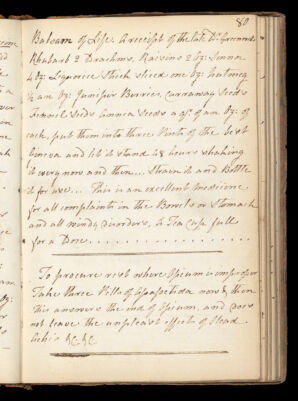 80
Balsam of Life. A receipt of the late Dr.
Rhubarb 2 Drachms, Raisins 2 oz: Senna
4 oz: Liquorice Stick sliced one oz: Nutmeg
½ an oz: Juniper Berries, Carraway Seeds
Fennel Seeds Annica Seeds a qr. of an oz: of
each put them into three Pints of the best
Geneva and let it stand 48 hours shaking
it every now and then... Strain it and Bottle
it for use... This is an excellent medicine
for all complaints in the Bowels or Stomach
and all windy disorders, a Tea Cup full
for a Dose
To procure rest where Opium is improper
Take three Pills of Assafoetida now & then
This answers the end of Opium, and does
not leave the unpleast effect of Head
Achs &c &c